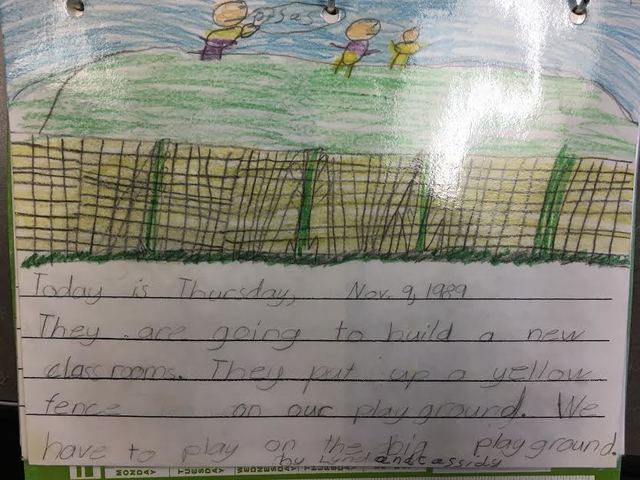 Today is Thursday, Nov. 9, 1989
They are going to build a new
classrooms. They put up a yellow
fence on our playground. We
have to play on the big playground.
by Lynd and Cassidy
MONDAY TUESDAY WEDNESDAY THURSDAY